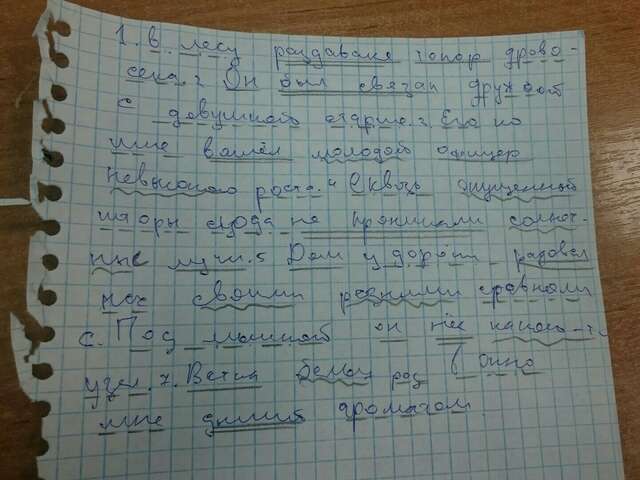 1. В лесу раздавался топор дрово-
сека. 2 Он был связан дружбой
с девушкой
мне вошёл молодой офицер
невысокого роста. 4 Сквозь опущенные
шторы сюда не проникали солнеч-
ные лучи. 5 Дом у дороги
нас своими резными ставнями
6. Под мышкой он нёс какой-то
узел. 7. Ветка белой в окно
мне дышит ароматом.